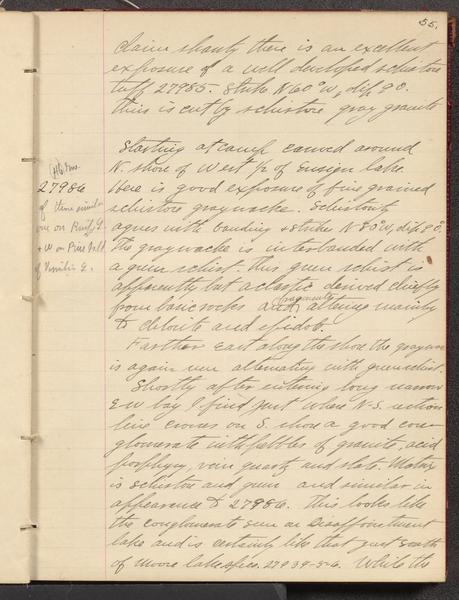 55.
claim shanty there is an excellent
exposure of a well developed schistose
tuff 27985. Strike N60°W, dip 90.
This is cut by schistose gray granite
Starting at camp canoed around
N. shore of West 1/2 of Ensign lake.
Here is good exposure of fine grained
schistose graywacke. Schistosity
agrees with banding & strikes N80°W, dip 90.
The graywacke is interbanded with
a green schist. This green schist is
apparently but a clastic derived chiefly
from basic rocks and fragments altering mainly
to chlorite and epidote.
Farther East along the shore the graywacke
is again seen alternating with green schist.
Shortly after entering long narrow
E-W bay I find just where N-S. section
line crosses on S. shore a good con-
glomerate with pebbles of granite, acid
porphyry, vein quartz and slate. Matrix
is schistose and green and similar in
appearance to 27986. This looks like
the conglomerate seen on Disappointment
lake and is certainly like that just South
of Moose lake spec. 27939-5-6. While the
27986
of these similar
one on
& W on Pine
of Vermilion